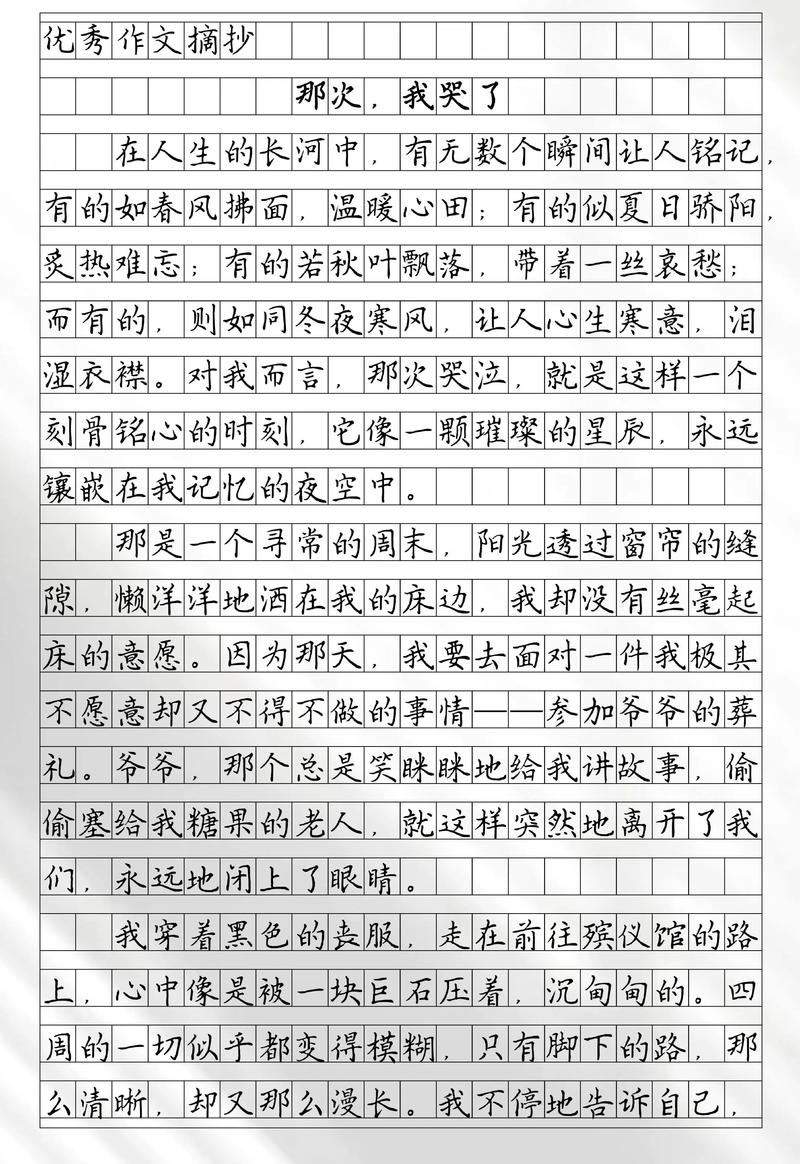 优秀作文摘抄
那次，我哭了
在人生的长河中，有无数个瞬间让人铭记，
有的如春风拂面，温暖心田；有的似夏日骄阳，
炙热难忘；有的若秋叶飘落，带着一丝哀愁；
而有的，则如同冬夜寒风，让人心生寒意，泪
湿衣襟。对我而言，那次哭泣，就是这样一个
刻骨铭心的时刻，它像一颗璀璨的星辰，永远
镶嵌在我记忆的夜空中。
那是一个寻常的周末，阳光透过窗帘的缝
隙，懒洋洋地洒在我的床边，我却没有丝毫起
床的意愿。因为那天，我要去面对一件我极其
不愿意却又不得不做的事情——参加爷爷的葬
礼。爷爷，那个总是笑眯眯地给我讲故事，偷
偷塞给我糖果的老人，就这样突然地离开了我
们，永远地闭上了眼睛。
我穿着黑色的丧服，走在前往殡仪馆的路
上，心中像是被一块巨石压着，沉甸甸的。四
周的一切似乎都变得模糊，只有脚下的路，那
么清晰，却又那么漫长。我不停地告诉自己，